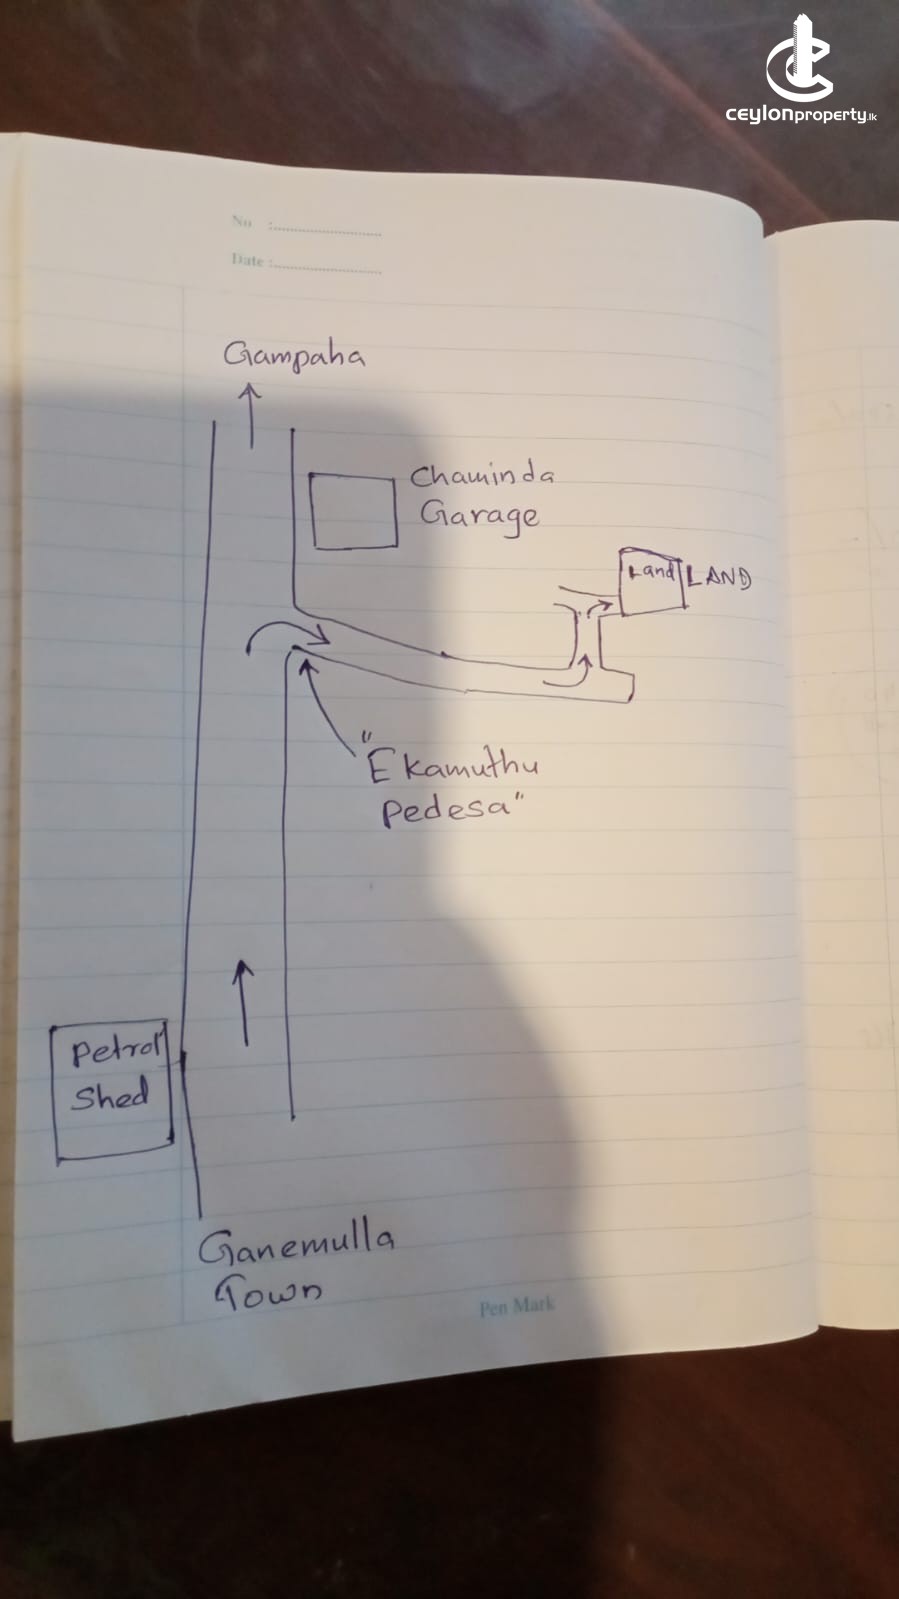 ceylonproperty.lk
No :
Date :
Gampaha
Chaminda
Garage
Land LAND
"Ekamuthu
Pedesa"
Petrol
Shed
Ganemulla
Town
Pen Mark